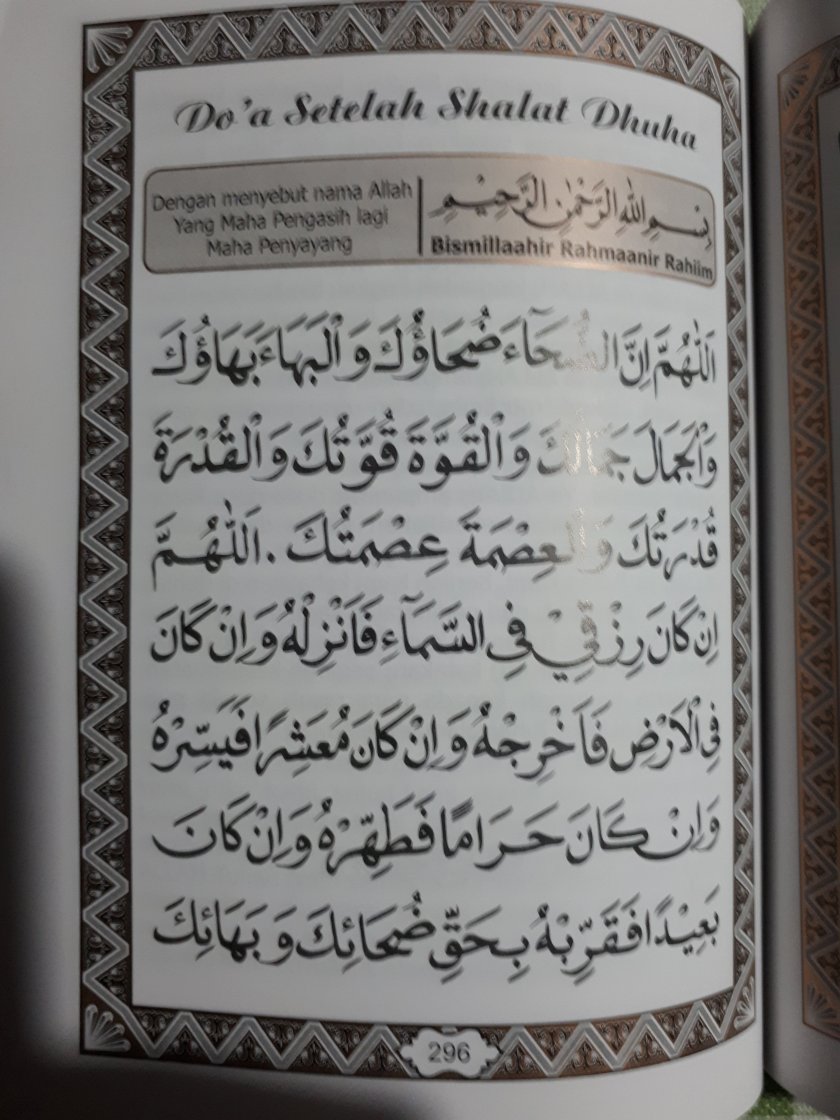 Do'a Setelah Shalat Dhuha
Dengan menyebut nama Allah
Yang Maha Pengasih lagi
Maha Penyayang
بِسْمِ اللهِ الرَّحْمٰنِ الرَّحِيْمِ
Bismillaahir Rahmaanir Rahiim
اَللّٰهُمَّ اِنَّ الضُّحَآءَ ضُحَاؤُكَ وَالْبَهَاءَ بَهَاؤُكَ
وَالْجَمَالَ جَمَالُكَ وَالْقُوَّةَ قُوَّتُكَ وَالْقُدْرَةَ
قُدْرَتُكَ وَالْعِصْمَةَ عِصْمَتُكَ . اَللّٰهُمَّ
اِنْ كَانَ رِزْقِيْ فِى السَّمَآءِ فَاَنْزِلْهُ وَاِنْ كَانَ
فِى الْاَرْضِ فَاَخْرِجْهُ وَاِنْ كَانَ مُعَسِّرًا فَيَسِّرْهُ
وَاِنْ كَانَ حَرَامًا فَطَهِّرْهُ وَاِنْ كَانَ
بَعِيْدًا فَقَرِّبْهُ بِحَقِّ ضُحَائِكَ وَبَهَائِكَ
296